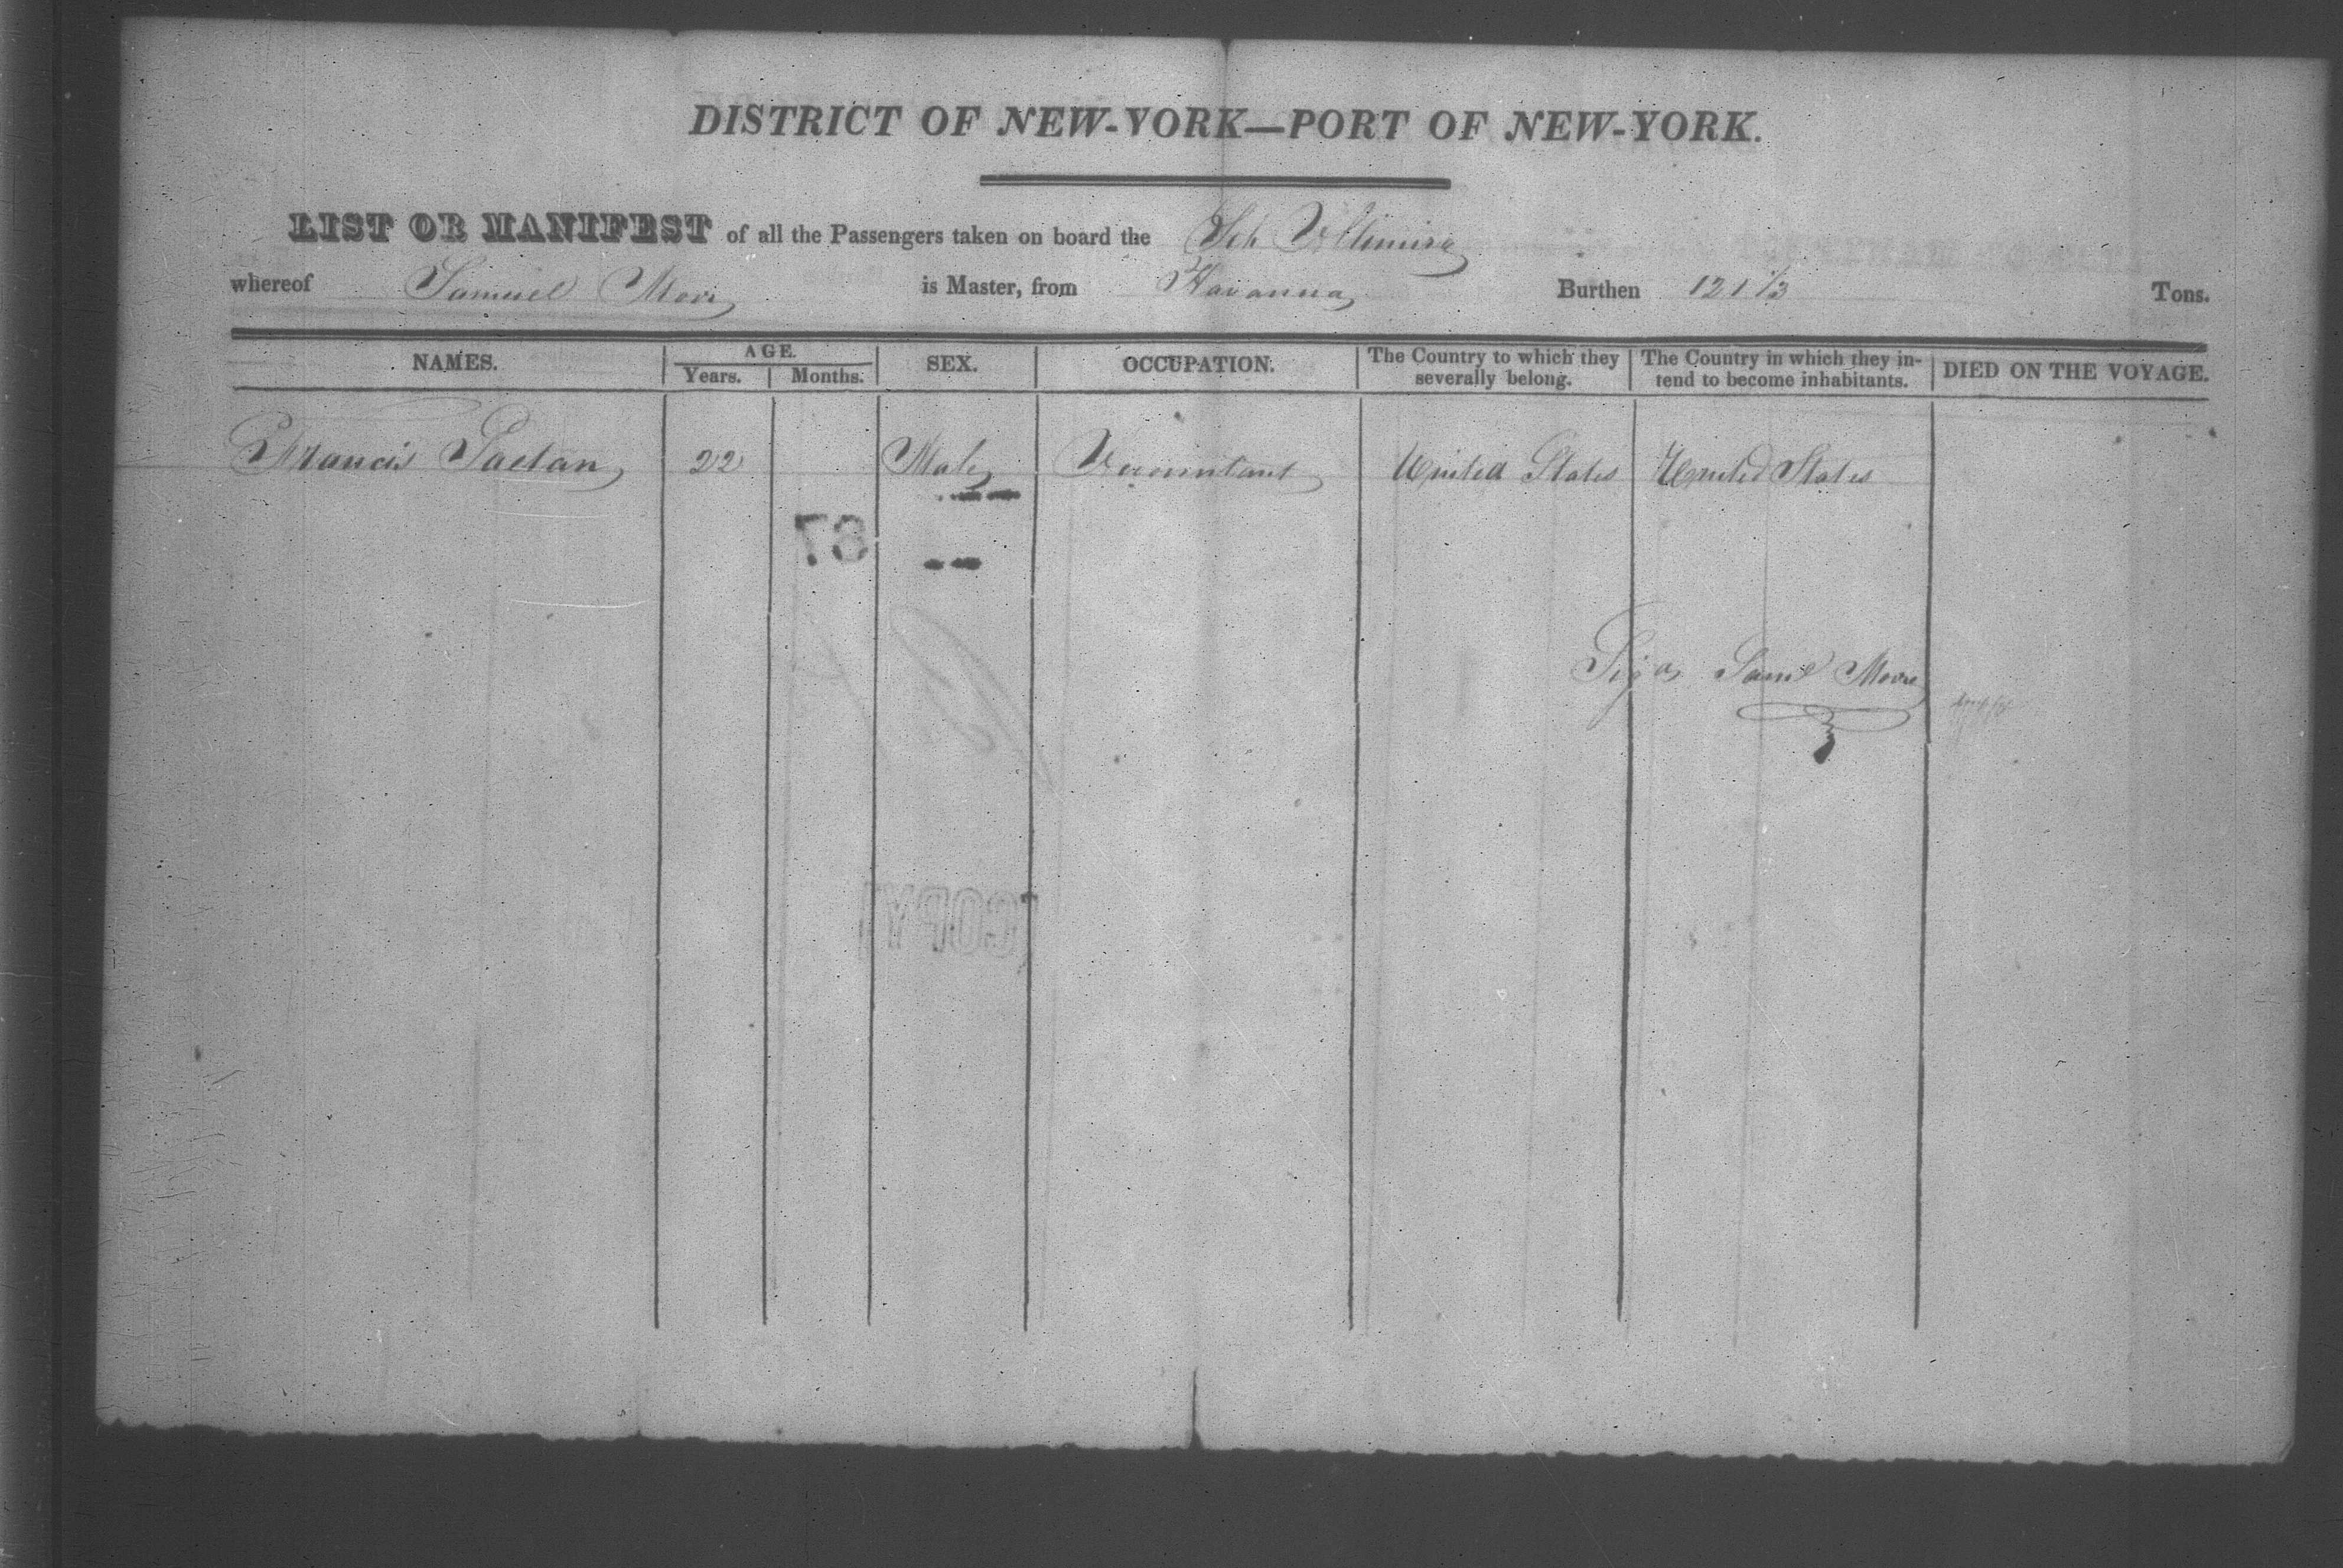 DISTRICT OF NEW-YORK—PORT OF NEW-YORK.
LIST OR MANIFEST of all the Passengers taken on board the Sch
whereof Samuel Moore is Master, from Havanna Burthen 121 1/3 Tons.
NAMES. AGE. Years. Months. SEX. OCCUPATION. The Country to which they severally belong. The Country in which they intend to become inhabitants. DIED ON THE VOYAGE.
Francis 22 Male Accountant United States United States
67
Saml Moore
COPY